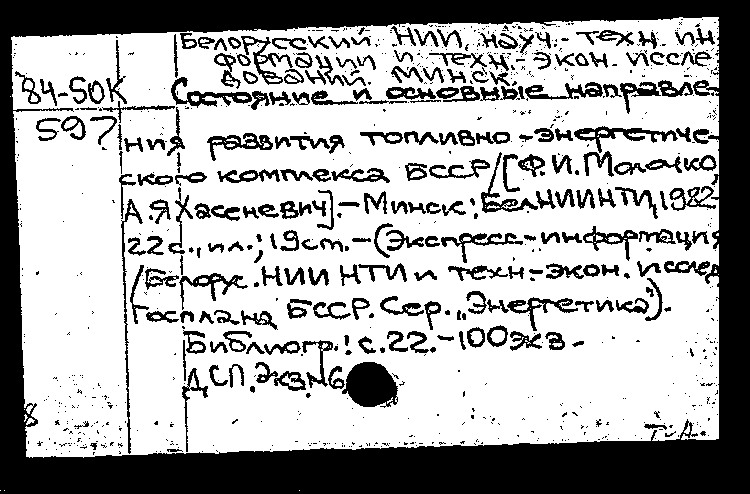 Белорусский НИИ науч.-техн. ин
формации и техн.-экон. иссле
дований. Минск.
84-50К Состояние и основные направле-
597 ния развития топливно-энергетиче-
ского комплекса БССР/[Ф.И.Молочко,
А.Я.Хасеневич].-Минск: БелНИИНТИ, 1982-
22с., ил.; 19см.-(Экспресс-информация
/Белорус. НИИ НТИ и техн.-экон. исслед
Госплана БССР. Сер. „Энергетика").
Библиогр.: с.22.-100экз-
ДСП. Экз.№6
8
Т-А.